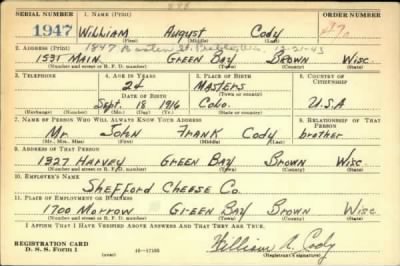 SERIAL NUMBER 1. NAME (Print) ORDER NUMBER
1947 WILLIAM August Cody
(First) (Middle) (Last)
2. ADDRESS (Print) 1847 12-21-43
1531 MAIN GREEN BAY BROWN WISC.
(Number and street or R. F. D. number) (Town) (County) (State)
3. TELEPHONE 4. AGE IN YEARS 5. PLACE OF BIRTH 6. COUNTRY OF CITIZENSHIP
24 MASTERS
DATE OF BIRTH (Town or county)
Sept. 18 1916 Colo. U.S.A
(Exchange) (Number) (Mo.) (Day) (Yr.) (State or country)
7. NAME OF PERSON WHO WILL ALWAYS KNOW YOUR ADDRESS 8. RELATIONSHIP OF THAT PERSON
Mr. JOHN FRANK Cody brother
(Mr., Mrs., Miss) (First) (Middle) (Last)
9. ADDRESS OF THAT PERSON
1327 HARVEY GREEN BAY BROWN WISC.
(Number and street or R. F. D. number) (Town) (County) (State)
10. EMPLOYER'S NAME
SHEFFORD CHEESE Co.
11. PLACE OF EMPLOYMENT OR BUSINESS
1700 MORROW GREEN BAY BROWN WISC.
(Number and street or R. F. D. number) (Town) (County) (State)
I AFFIRM THAT I HAVE VERIFIED ABOVE ANSWERS AND THAT THEY ARE TRUE.
REGISTRATION CARD
D. S. S. Form 1 (over) 16-17105 William A. Cody
(Registrant's signature)